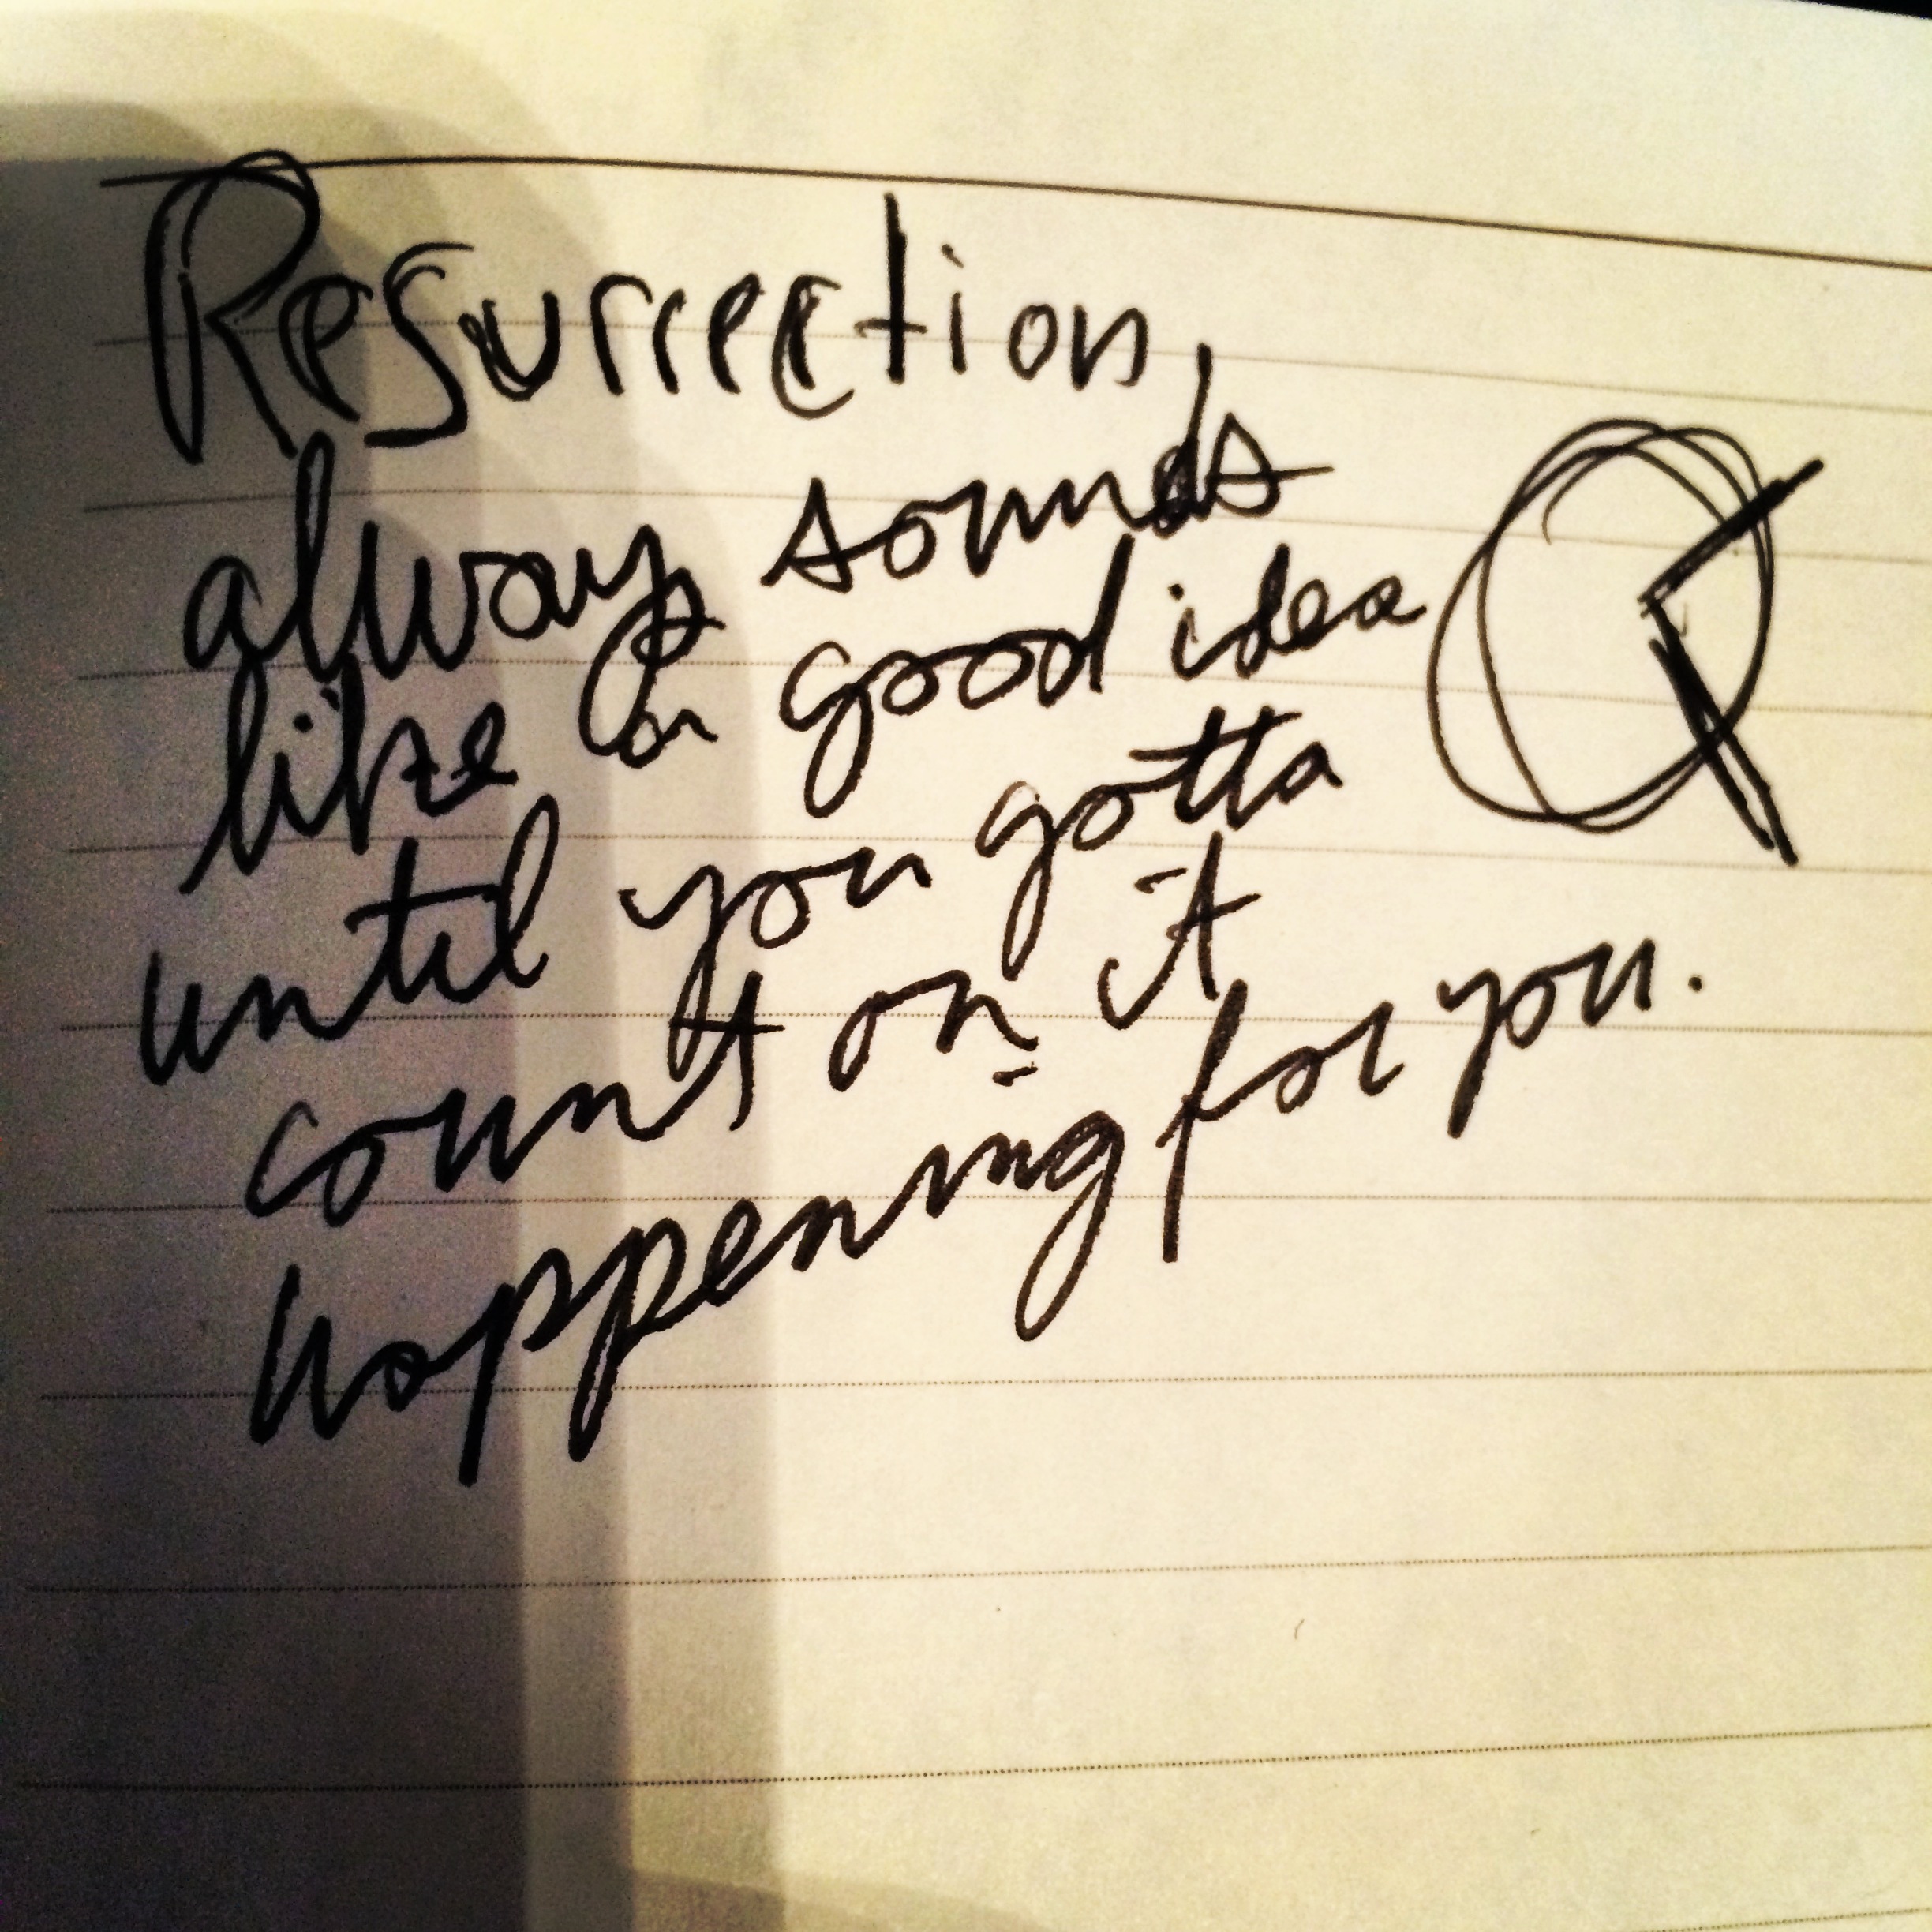 Resurrection,
always sounds
like a good idea
until you gotta
count on it
happening for you.